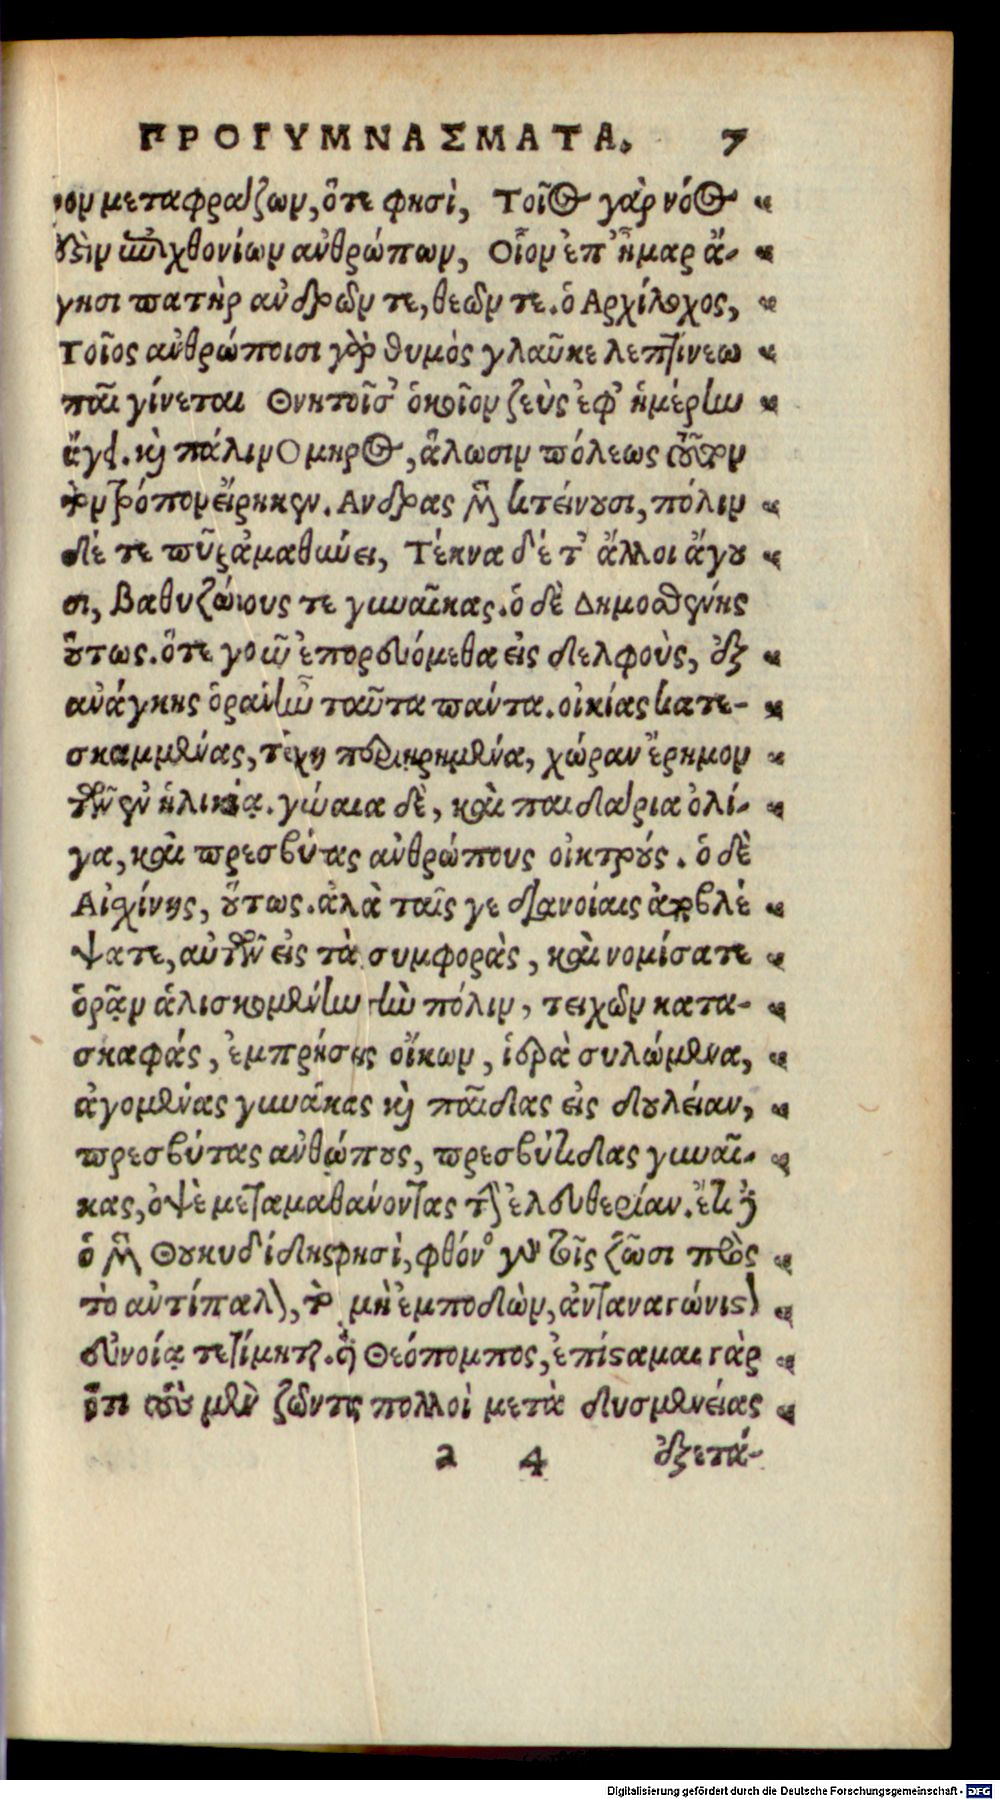 ΠΡΟΓΥΜΝΑΣΜΑΤΑ. 7
μεταφράζων, ὅτε φησὶ, Τοῖος γὰρ νόος
ἐστὶν ἐπιχθονίων ἀνθρώπων, Οἷον ἐπ' ἦμαρ ἄ-
γησι πατὴρ ἀνδρῶν τε, θεῶν τε. ὁ Αρχίλοχος,
Τοῖος ἀνθρώποισι θυμὸς γλαῦκε λεπτίνεω
παῖ γίνεται Θνητοῖσ' ὁκοῖον ζεὺς ἐφ' ἡμέρην
ἄγει. καὶ πάλιν Ομηρος, ἅλωσιν πόλεως
τρόπον εἴρηκεν. Ανδρας μὲν κτείνουσι, πόλιν
δέ τε πῦρ ἀμαθύνει, Τέκνα δέ τ' ἄλλοι ἄγου
σι, βαθυζώνους τε γυναῖκας. ὁ δὲ Δημοσθένης
οὕτως. ὅτε γοῦν ἐπορευόμεθα εἰς δελφοὺς, ἐξ
ἀνάγκης ὁρᾶν ἦν ταῦτα πάντα. οἰκίας κατε-
σκαμμένας, τείχη περιῃρημένα, χώραν ἔρημον
τῶν ἐν ἡλικίᾳ. γύναια δὲ, καὶ παιδάρια ὀλί-
γα, καὶ πρεσβύτας ἀνθρώπους οἰκτρούς. ὁ δὲ
Αἰσχίνης, οὕτως. ἀλὰ ταῖς γε διανοίαις ἀποβλέ
ψατε, αὐτῶν εἰς τὰ συμφορὰς, καὶ νομίσατε
ὁρᾷν ἁλισκομένην τὴν πόλιν, τειχῶν κατα-
σκαφάς, ἐμπρήσεις οἴκων, ἱερὰ συλώμενα,
ἀγομένας γυναίκας καὶ παῖδας εἰς δουλείαν,
πρεσβύτας ἀνθώπους, πρεσβύτιδας γυναῖ-
κας, ὀψὲ μεταμαθάνοντας τὴν ἐλευθερίαν. ἔτι
ὁ μὲν Θουκυδίδης φησὶ, φθόνος γὰρ τοῖς ζῶσι πρὸς
τὸ ἀντίπαλον, τὸ μὴ ἐμποδὼν, ἀνταναγώνιστον
εὐνοίᾳ τετίμηται. Θεόπομπος, ἐπίσταμαι γὰρ
ὅτι τοὺς μὲν ζῶντας πολλοὶ μετὰ δυσμενείας
a 4 ἐξετά-
Digitalisierung gefördert durch die Deutsche Forschungsgemeinschaft - DFG